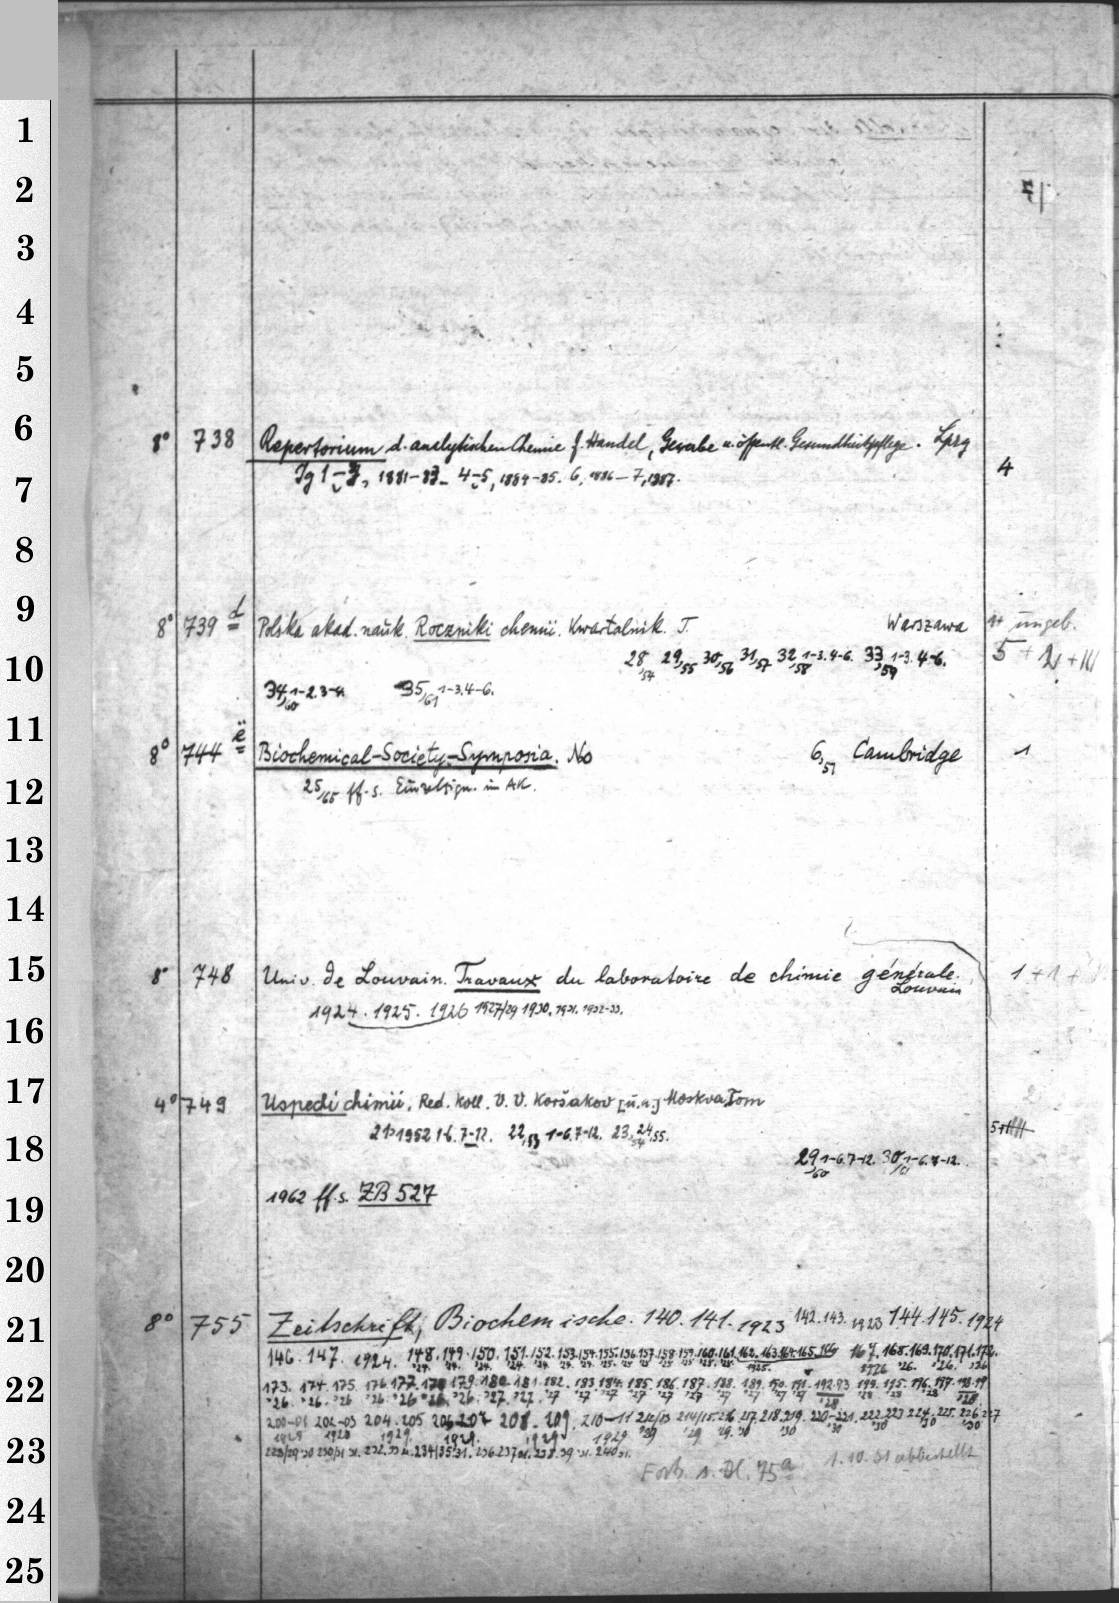 1
2
3
4
5
6
8° 738 Repertorium d. analytischen Chemie f. Handel, Gewabe u. öffentl. Gesundheitspflege. Lpzg
Jg 1-3, 1881-83. 4-5, 1884-85. 6, 1886-7, 1887. 4
7
8
9
8° 739 d Polska akad. nauk. Roczniki chemii. Kwartalnik. T. Warszawa ungeb.
10
28,54 29,55 30,56 31,57 32,58 1-3. 4-6. 33,59 1-3. 4-6. 5 + 2
34,60 1-2. 3-4 35,61 1-3. 4-6.
11
8° 744 e Biochemical-Society-Symposia. No 6,51 Cambridge 1
12
25/65 ff. s. Einzelsign. im AK.
13
14
15
8° 748 Univ. de Louvain. Travaux du laboratoire de chimie générale. Louvain 1 + 1
16
1924. 1925. 1926 1927/29 1930. 1931. 1932-33.
17
4° 749 Uspechi chimii, Red. koll. V. V. Koršakov [u.a.] Moskva Tom
18
21, 1952 1-6. 7-12. 22,53 1-6. 7-12. 23,54 24,55.
29,60 1-6. 7-12. 30,61 1-6. 7-12.
19
1962 ff. s. ZB 527
20
21
8° 755 Zeitschrift, Biochemische. 140. 141. 1923 142. 143. 1923 144. 145. 1924
146. 147. 1924. 148. 149. 150. 151. 152. 153. 154. 155. 156. 157. 158. 159. 160. 161. 162. 163. 164. 165. 166 167. 168. 169. 170. 171. 172.
22
173. 174. 175. 176. 177. 178. 179. 180. 181. 182. 183. 184. 185. 186. 187. 188. 189. 190. 191. 192. 93 194. 195. 196. 197. 198. 99
200-01 202-03 204. 205 206 207 208. 209. 210-11 212/13 214/15 216 217 218. 219. 220-221. 222. 223 224. 225. 226. 227
23
228/29 '30 230/31 31. 232. 33 234/35 31. 236. 237 31. 238. 39 31. 240 31.
Forts. s. Dl. 75a 1. 10. 31 abbestellt
24
25